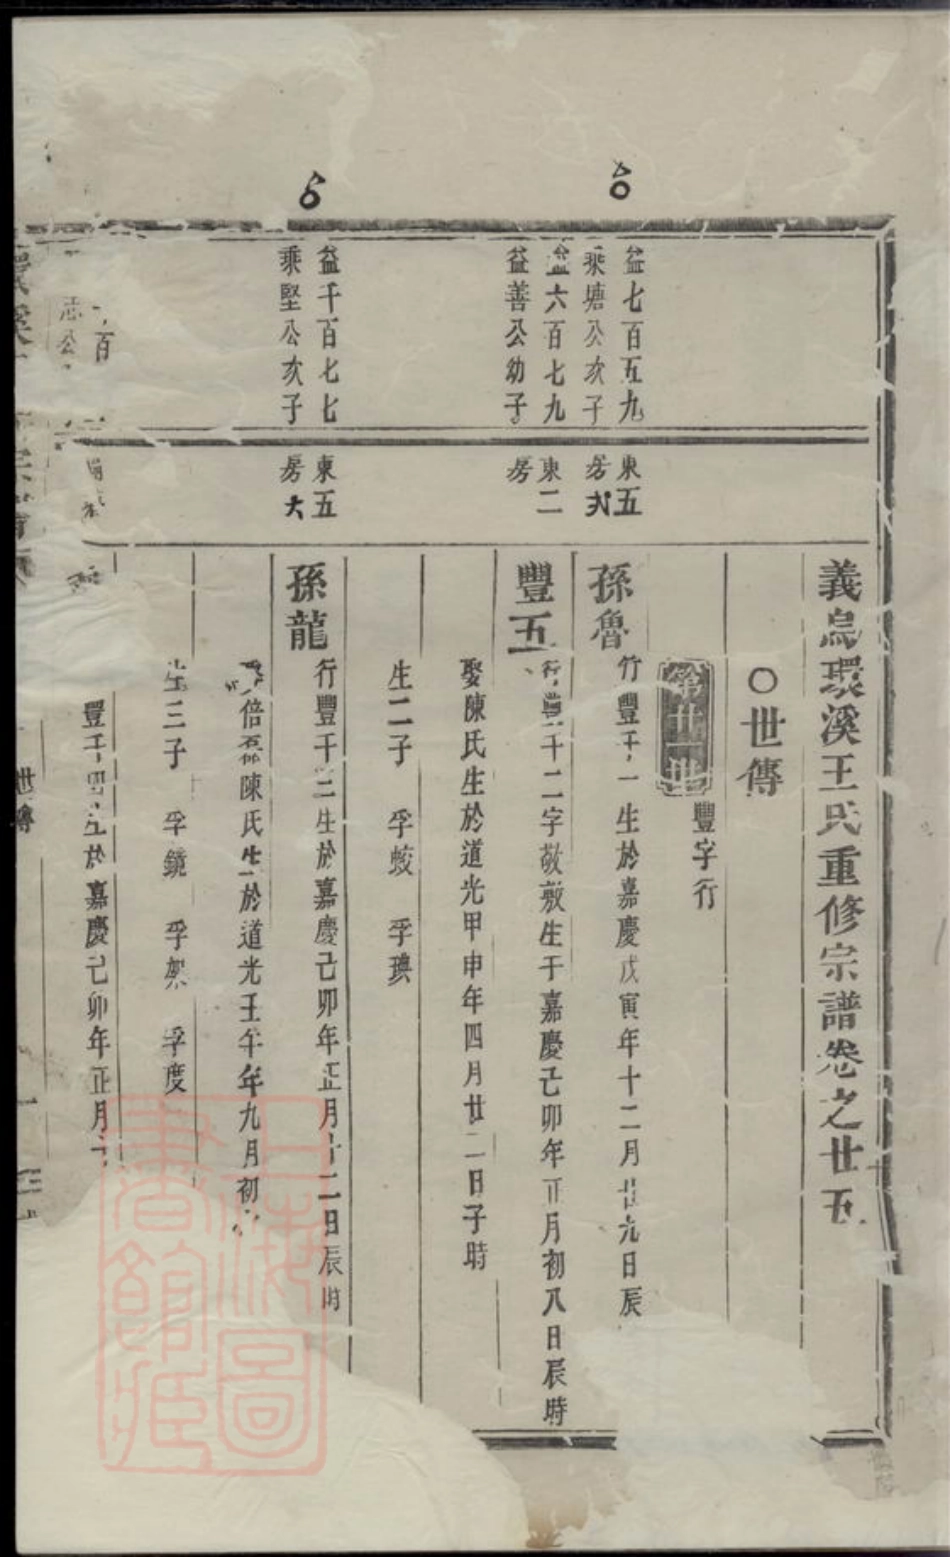 義烏環溪王氏重修宗譜卷之廿五
〇世傳
第廿一世
豐字行
益七百五九
乘塘公次子
東五
房
孫魯
行豐千一生於嘉慶戊寅年十二月廿九日辰
益六百七九
益善公幼子
東二
房
豐五
行豐千二字敬敷生于嘉慶己卯年正月初八日辰時
娶陳氏生於道光甲申年四月廿二日子時
生二子 孚蛟 孚璵
益千百七七
乘堅公次子
東五
房六
孫龍
行豐千三生於嘉慶己卯年正月十二日辰時
倍磊陳氏生於道光壬午年九月初
生三子 孚鏡 孚架 孚度
百
忠公
豐千四生於嘉慶己卯年正月
世傳
一
上海圖書館藏